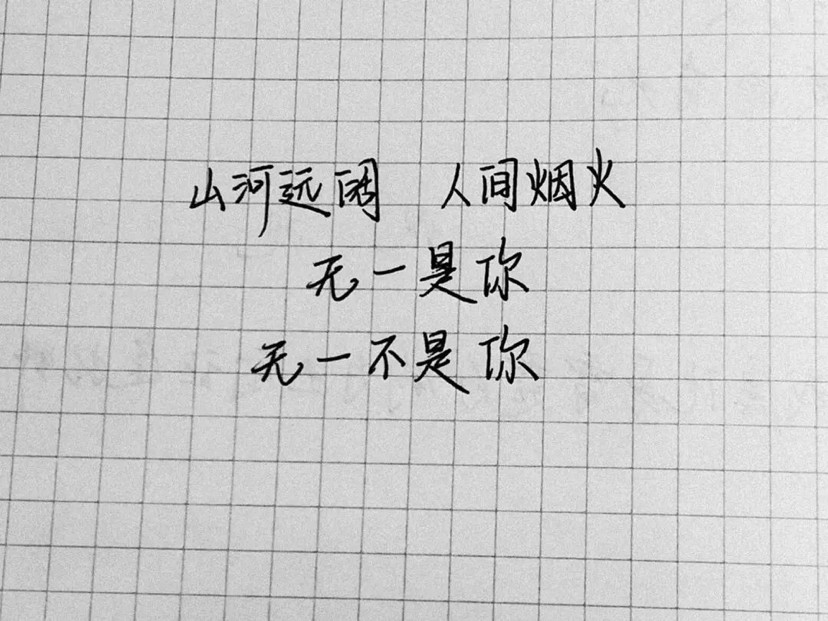 山河远阔 人间烟火
无一是你
无一不是你